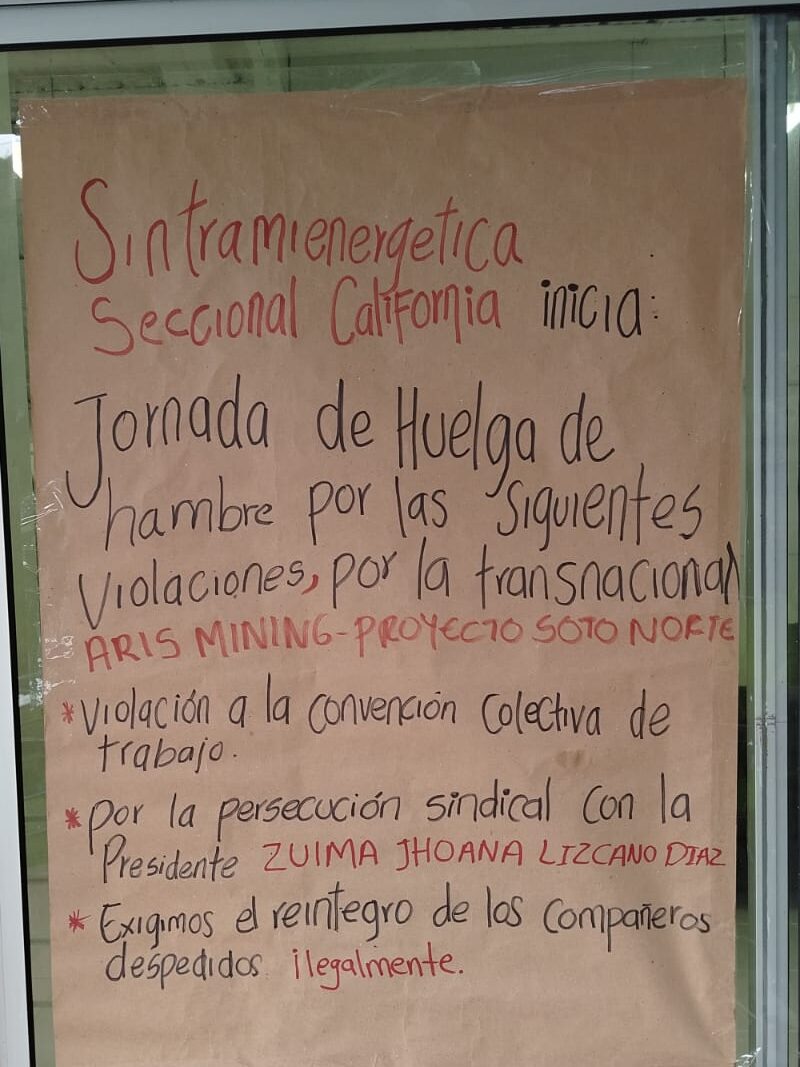 Sintramienergetica
Seccional California inicia:
Jornada de Huelga de
hambre por las siguientes
Violaciones, por la transnacional
ARIS MINING-PROYECTO SOTO NORTE
*Violación a la convención Colectiva de
trabajo.
*por la persecución sindical con la
Presidente ZUIMA JHOANA LIZCANO DIAZ
* Exigimos el reintegro de los compañeros
despedidos ilegalmente.